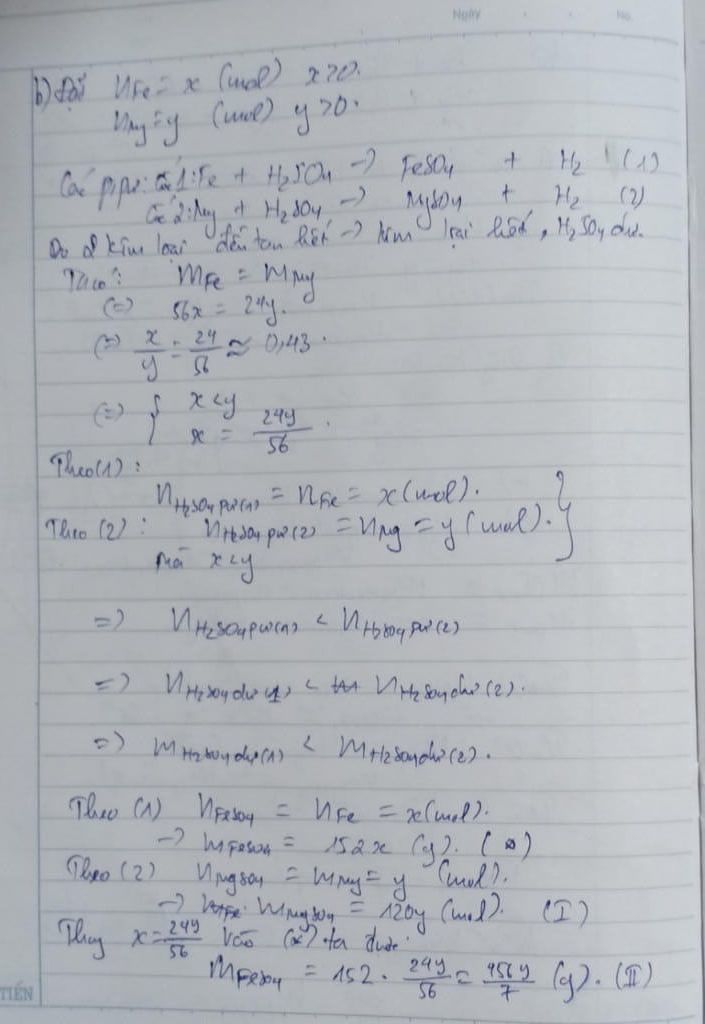 Ngày No.
b) Đặt nFe = x (mol) x>0.
nMg = y (mol) y>0.
Các ptpư: Cốc 1: Fe + H2SO4 → FeSO4 + H2 (1)
Cốc 2: Mg + H2SO4 → MgSO4 + H2 (2)
Do 2 kim loại đều tan hết → kim loại hết, H2SO4 dư.
Ta có: mFe = mMg
(=) 56x = 24y.
(=) x/y = 24/56 ≈ 0,43.
(=) { x<y
x = 24y/56.
Theo (1):
nH2SO4 pư(1) = nFe = x (mol). }
Theo (2): nH2SO4 pư(2) = nMg = y (mol).
mà x<y
=) nH2SO4 pư(1) < nH2SO4 pư(2)
=) nH2SO4 dư(1) < nH2SO4 dư(2).
=) mH2SO4 dư(1) < mH2SO4 dư(2).
Theo (1) nFeSO4 = nFe = x (mol).
→ mFeSO4 = 152x (g). (*)
Theo (2) nMgSO4 = mMg = y (mol).
→ mMgSO4 = 120y (mol). (I)
Thay x = 24y/56 vào (*) ta được:
mFeSO4 = 152 . 24y/56 = 456y/7 (g). (II)
TIẾN